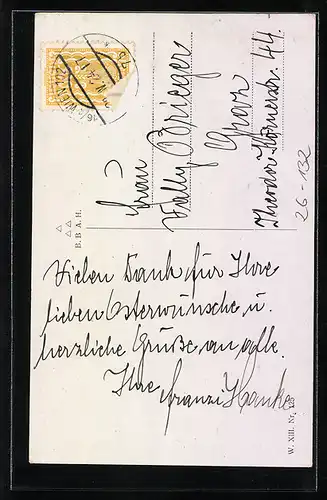 Frau
Kally Brieger
Graz
Theodor Körnerstr. 44.
26-132
B. B. A. H.
Vielen Dank für Ihre
lieben Osterwünsche u.
herzliche Grüße an alle.
Ihre Franzi Hanke
W. XIII. Nr. 125